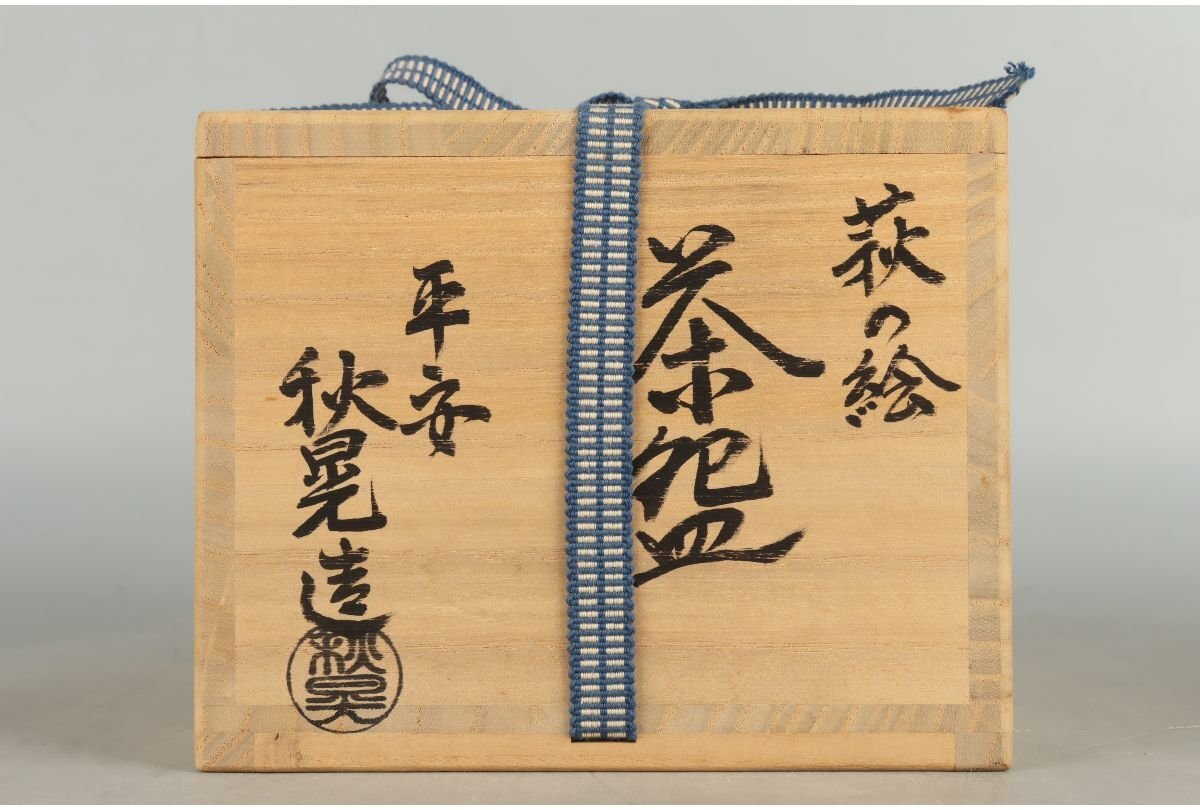 萩の絵
茶盌
平安
秋晃造
秋晃